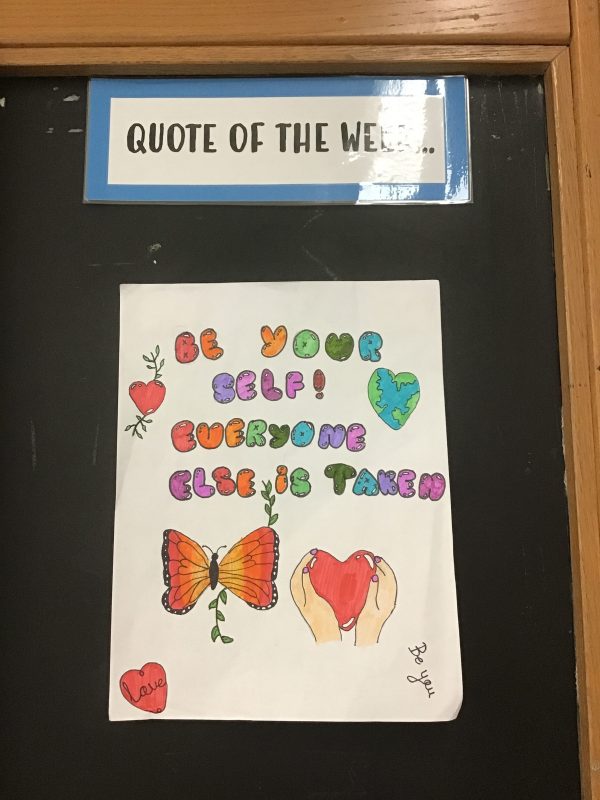 QUOTE OF THE WEEK...
BE YOUR
SELF!
EVERYONE
ELSE iS TAKEN
love
Be you